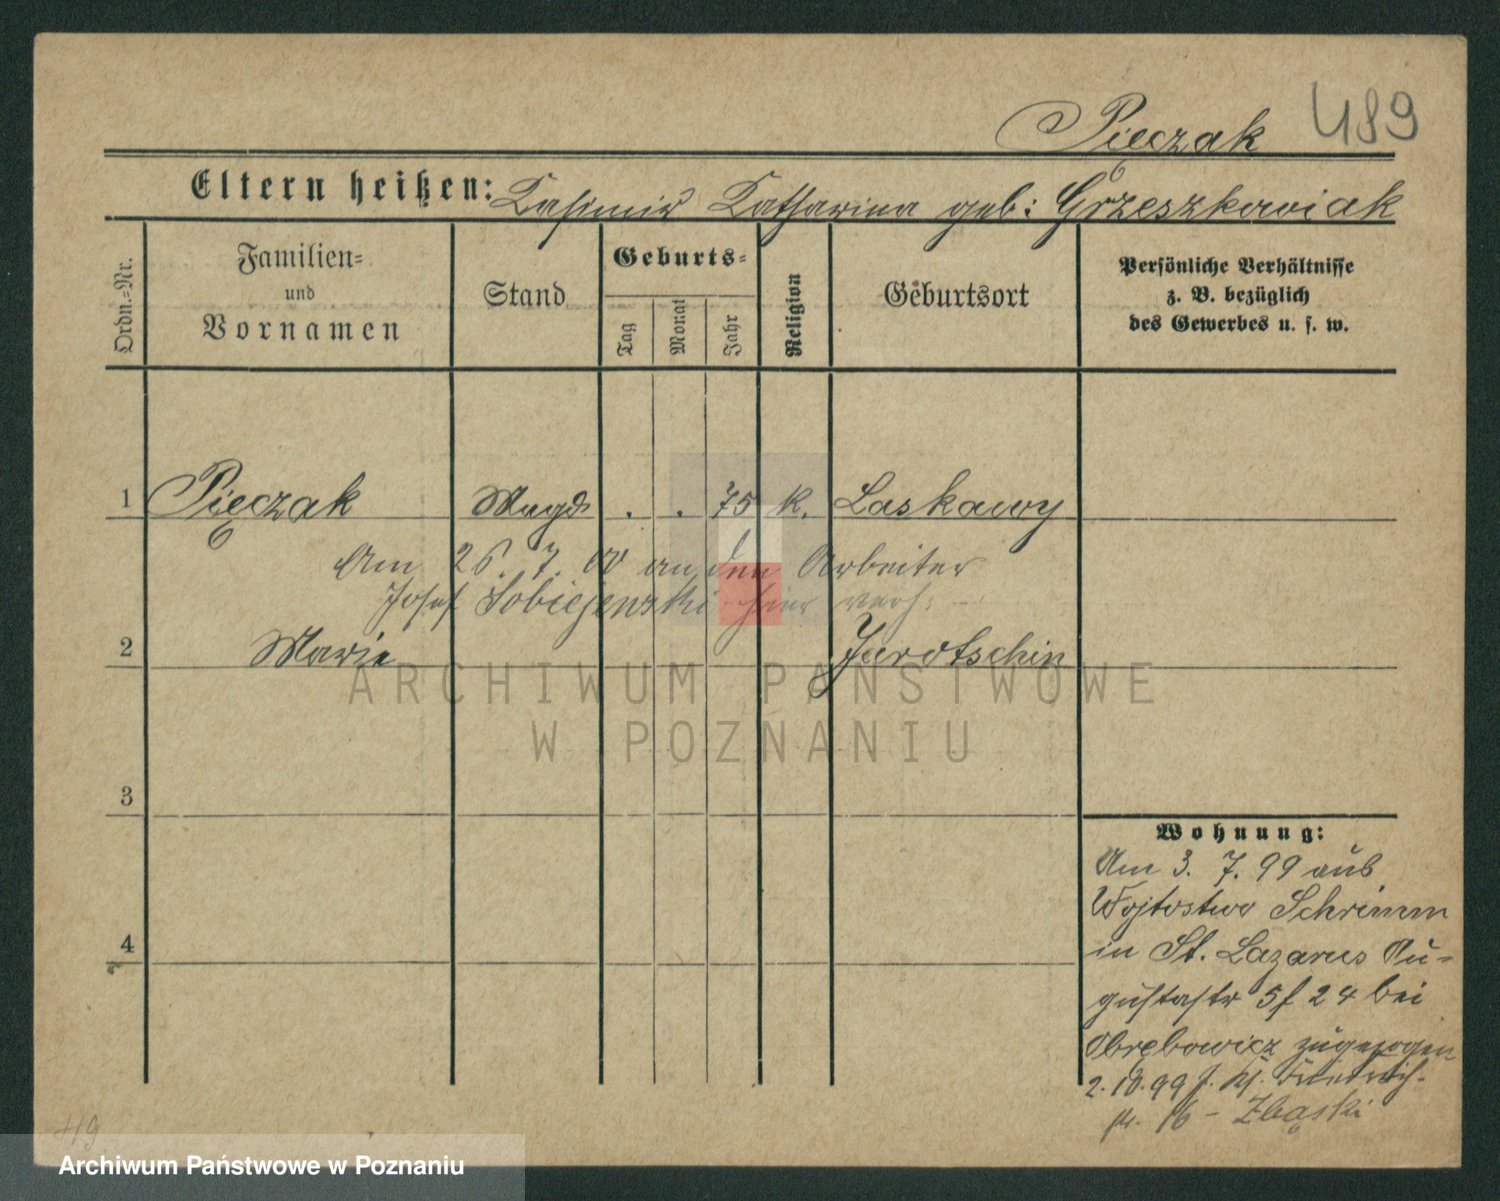 Pieczak 489
Eltern heißen: Kasimir Katharina geb: Grzeszkowiak
Ordn.=Nr.
Familien=
und
Vornamen
Stand
Geburts=
Tag
Monat
Jahr
Religion
Geburtsort
Persönliche Verhältnisse
z. B. bezüglich
des Gewerbes u. s. w.
1 Pięczak Magd . . 75 K. Laskawy
Am 26. 7. 00 an den Arbeiter
Josef Sobiejenski hier verh.
2 Marie Jarotschin
3
4
Wohnung:
Am 3. 7. 99 aus
Wojtostwo Schrimm
in St. Lazarus Au=
gustastr 5f 24 bei
Obrębowicz zugezogen
2. 10. 99 Friedrich-
str. 16 - Zbąski
49
ARCHIWUM PAŃSTWOWE
W POZNANIU
Archiwum Państwowe w Poznaniu